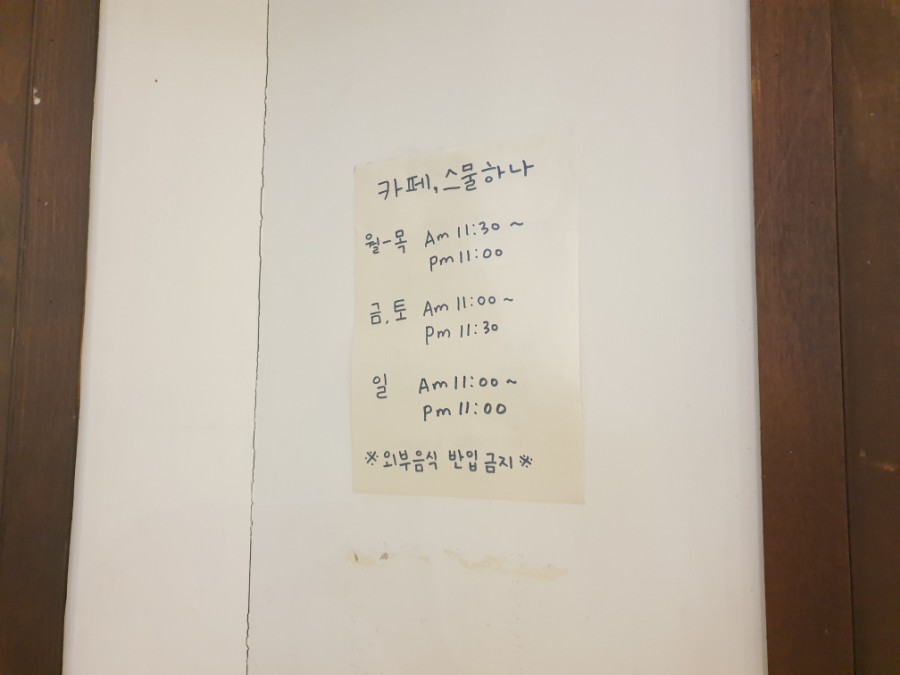 카페, 스물하나
월-목 Am 11:30 ~
pm 11:00
금, 토 Am 11:00 ~
pm 11:30
일 Am 11:00 ~
pm 11:00
※외부음식 반입 금지※